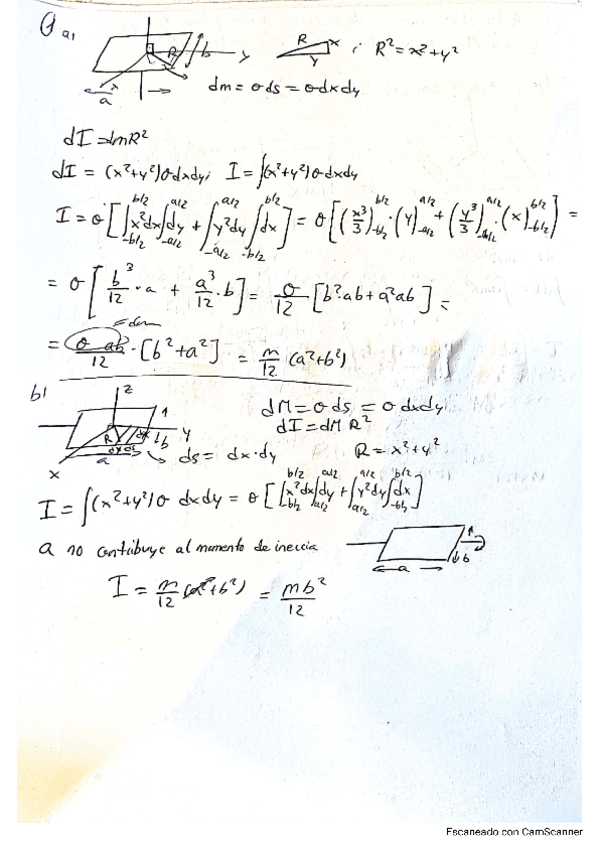 a)
R b y R x y ; R² = x² + y²
x a dm = σ ds = σ dxdy
dI = dmR²
dI = (x²+y²)σ dxdy; I = ∫(x²+y²)σ dxdy
I = σ [∫_{-b/2}^{b/2} x²dx ∫_{-a/2}^{a/2} dy + ∫_{-a/2}^{a/2} y²dy ∫_{-b/2}^{b/2} dx] = σ [(x³/3)_{-b/2}^{b/2} · (y)_{-a/2}^{a/2} + (y³/3)_{-a/2}^{a/2} · (x)_{-b/2}^{b/2}] =
= σ [b³/12 · a + a³/12 · b] = σ/12 [b²ab + a²ab] =
= dm
= σ ab/12 · [b² + a²] = m/12 (a²+b²)
b) z
dM = σ ds = σ dxdy
dI = dM R²
R dx b y R = x² + y²
x a dx ds → ds = dx·dy
I = ∫(x²+y²)σ dxdy = σ [∫_{b/2}^{b/2} x²dx ∫_{a/2}^{a/2} dy + ∫_{a/2}^{a/2} y²dy ∫_{-b/2}^{b/2} dx]
a no contribuye al momento de inercia
a b
I = m/12 (a²+b²) = mb²/12
Escaneado con CamScanner